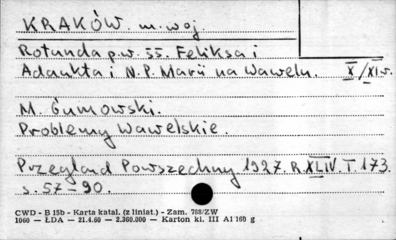 KRAKÓW. m. woj.
Rotunda p.w. SS. Feliksa i
Adaukta i N.P. Marii na Wawelu. X/XI w.
M. Gumowski.
Problemy Wawelskie.
Przegląd Powszechny 1927. R. XLIV. T. 173.
s. 57 - 90.
CWD - B 15b - Karta katal. (z liniat.) - Zam. 788/ZW
1060 — ŁDA — 21.4.60 — 2.360.000 — Karton kl. III A1 160 g